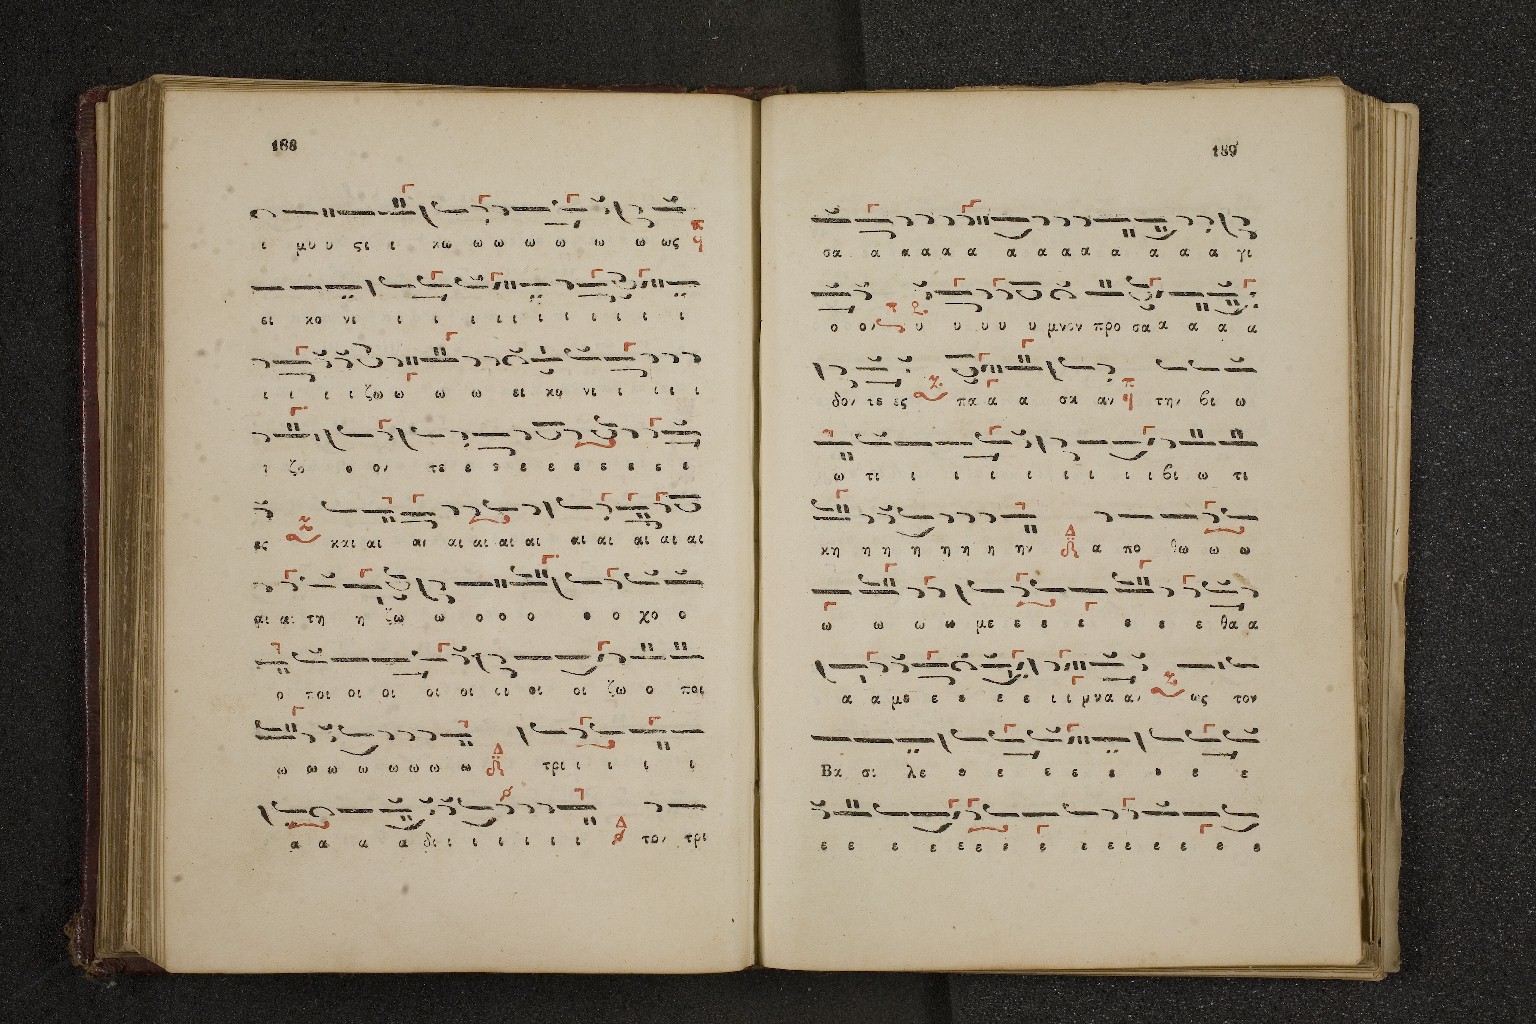 188
ι μυυ ςι ι κω ω ω ω ω ω ω ως
ει κο νι ι ι ι ι ι ι ι ι ι ι ι
ι ι ι ι ζω ω ω ω ει κο νι ι ι ι
ι ζο ο ον τε ε ε ε ε ε ε ε ε ε
ες και αι αι αι αι αι αι αι αι αι αι αι
αι αι τη η ζω ω ο ο ο ο ο χο ο
ο ποι οι οι οι οι οι οι οι ζω ο ποι
ω ω ω ω ω ω ω ω τρι ι ι ι ι
α α α α δι ι ι ι ι ι ι τον τρι
189
σα α α α α α α α α α α α α α γι
ο ον υ υ υ υ υ μνον προ σα α α α α
δον τε ες πα α α σα αν την βι ω
ω τι ι ι ι ι ι ι ι ι βι ω τι
κη η η η η η η ην α πο θω ω ω
ω ω ω ω με ε ε ε ε ε ε θα α
α α με ε ε ε ε ι ι μνα αν ως τον
Βα σι λε ε ε ε ε ε ε ε ε
ε ε ε ε ε ε ε ε ε ε ε ε ε ε ε